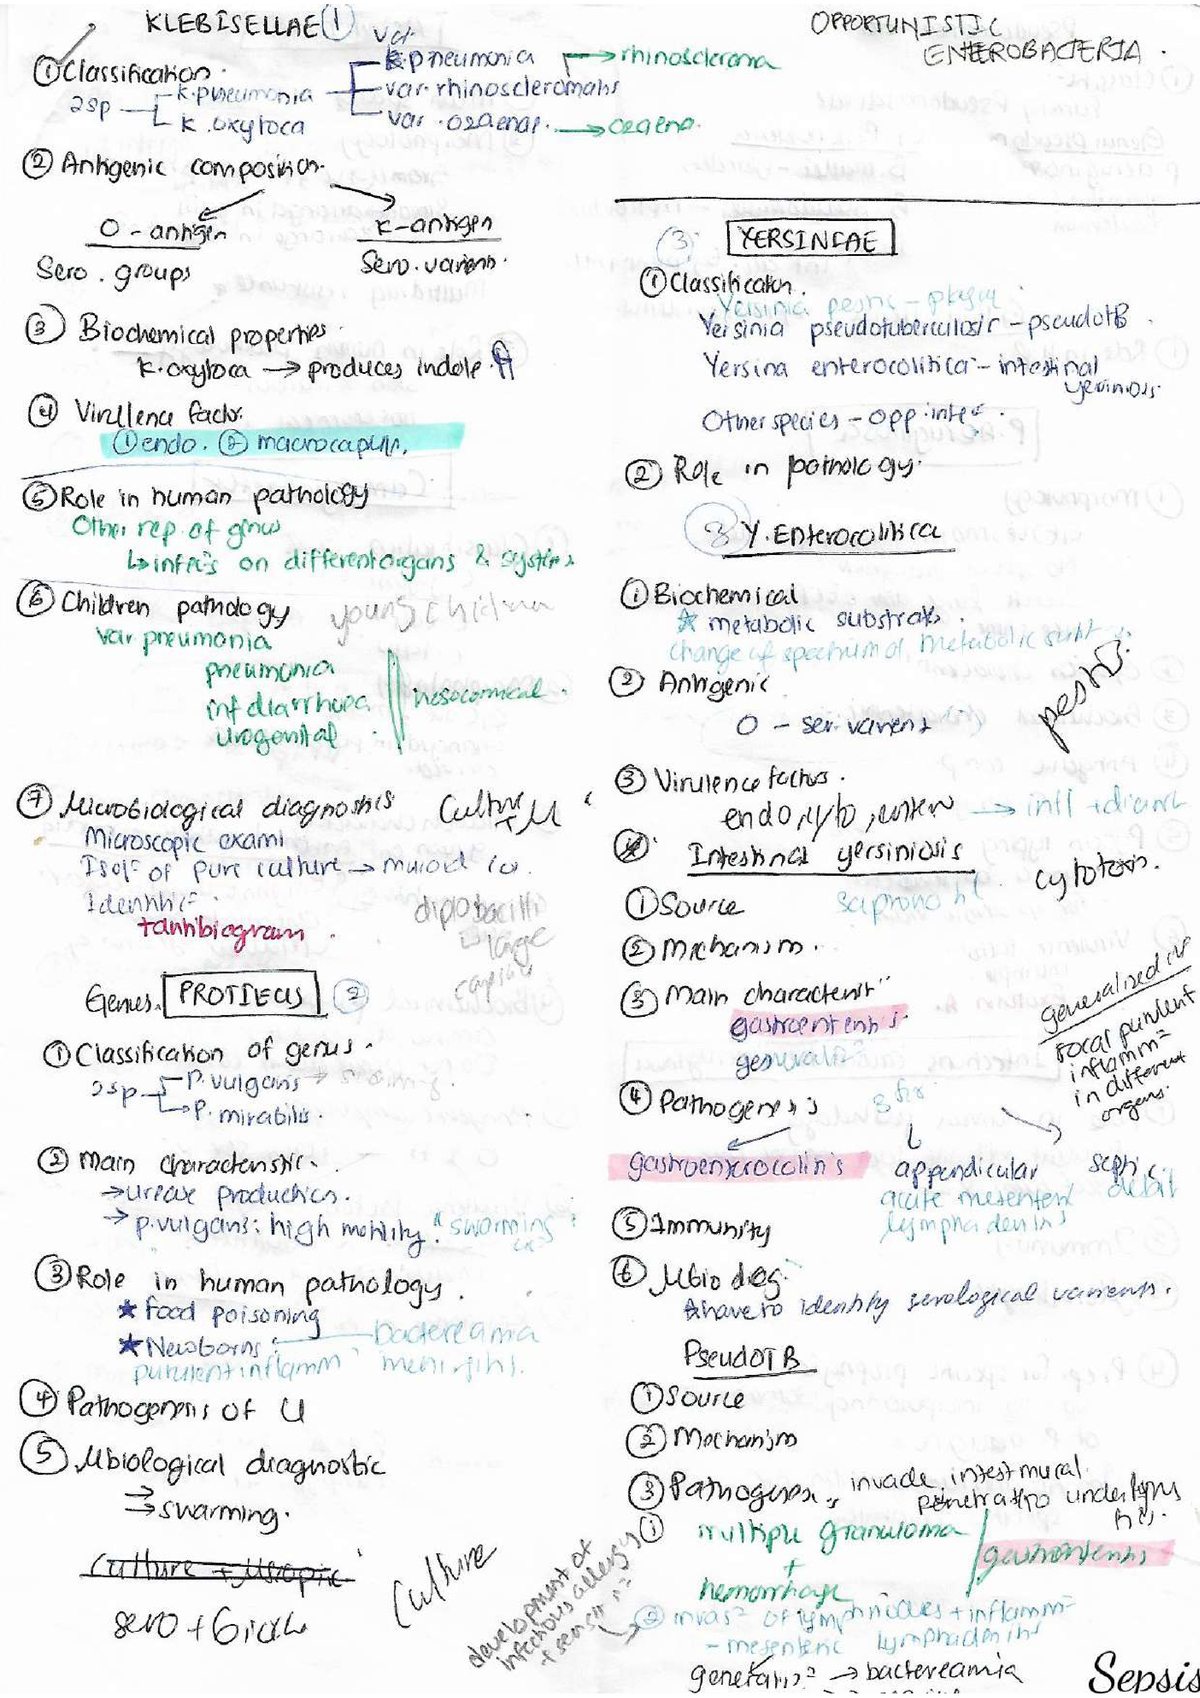 KLEBISELLAE ①
① Classification.
2sp
K. pneumonia
K. oxytoca
var
K. pneumonia → rhinoscleroma
var. rhinoscleromatis
var. ozaenae. → ozaena.
② Antigenic composition.
O - antigen
Sero. groups
K-antigen
Sero. varients.
③ Biochemical properties.
K. oxytoca → produces indole.
④ Virullence factr.
① endo. ② macrocapsule.
⑤ Role in human pathology
Other rep. of genus
↳ infns on different organs & systems
⑥ Children pathology
young children
var pneumonia
pneumonia
inf diarrhoea
urogenital
nosocomical.
⑦ Microbiological diagnostics
Culture + M
Microscopic exami
Isoln of pure culture → mucoid co.
Identifn
+antibiogram.
diplobacilli
large
Genus. PROTIEUS ②
① Classification of genus.
2sp
P. vulgaris → swarming.
P. mirabilis.
② Main characteristic.
→ urease production.
→ p. vulgaris: high motility. "swarming"
③ Role in human pathology.
★ Food poisoning
★ Newborns: bactereama
purulent inflamm meningitis.
④ Pathogenesis of U
⑤ Mbiological diagnostic
→ swarming.
Culture + Mscopic
Culture
sero +
OPPORTUNISTIC
ENTEROBACTERIA.
③ YERSINEAE
① Classification.
Yersinia pestis - plague
Yersinia pseudotuberculosis - pseudotB.
Yersina enterocolitica - intestinal
yersiniosis.
Other species - opp. infn.
② Role in pathology.
③ Y. Enterocolitica
① Biochemical
★ metabolic substrats.
change of spectrum of metabolic subst
② Antigenic
O - ser. varient
pestis.
③ Virulence factors.
endo, cyto, entero → infl + diarrh
④ Intestinal yersiniosis
cytotox.
① Source
② Mechanism.
③ Main characterist
gastroenteritis.
generalisn
generalized inf
Focal purulent
inflammn
in different
organs.
④ Pathogenesis
3 for
gastroenterocolitis
appendicular
acute mesenteri
lymphadenitis
septic
⑤ Immunity
⑥ Mbio diag.
★ have to identify serological varients.
PseudoTB
① Source
② Mechanism
③ Pathogenesis
invade intest mural.
penetration under lymp
① multiple granuloma
+
hemorrhage
gastroentenitis
development of
infectious allergy
+ sensitisn
② invasn of lymphnodes + inflammn
- mesenteric lymphadenitis
generalisn → bactereamia
Sepsis